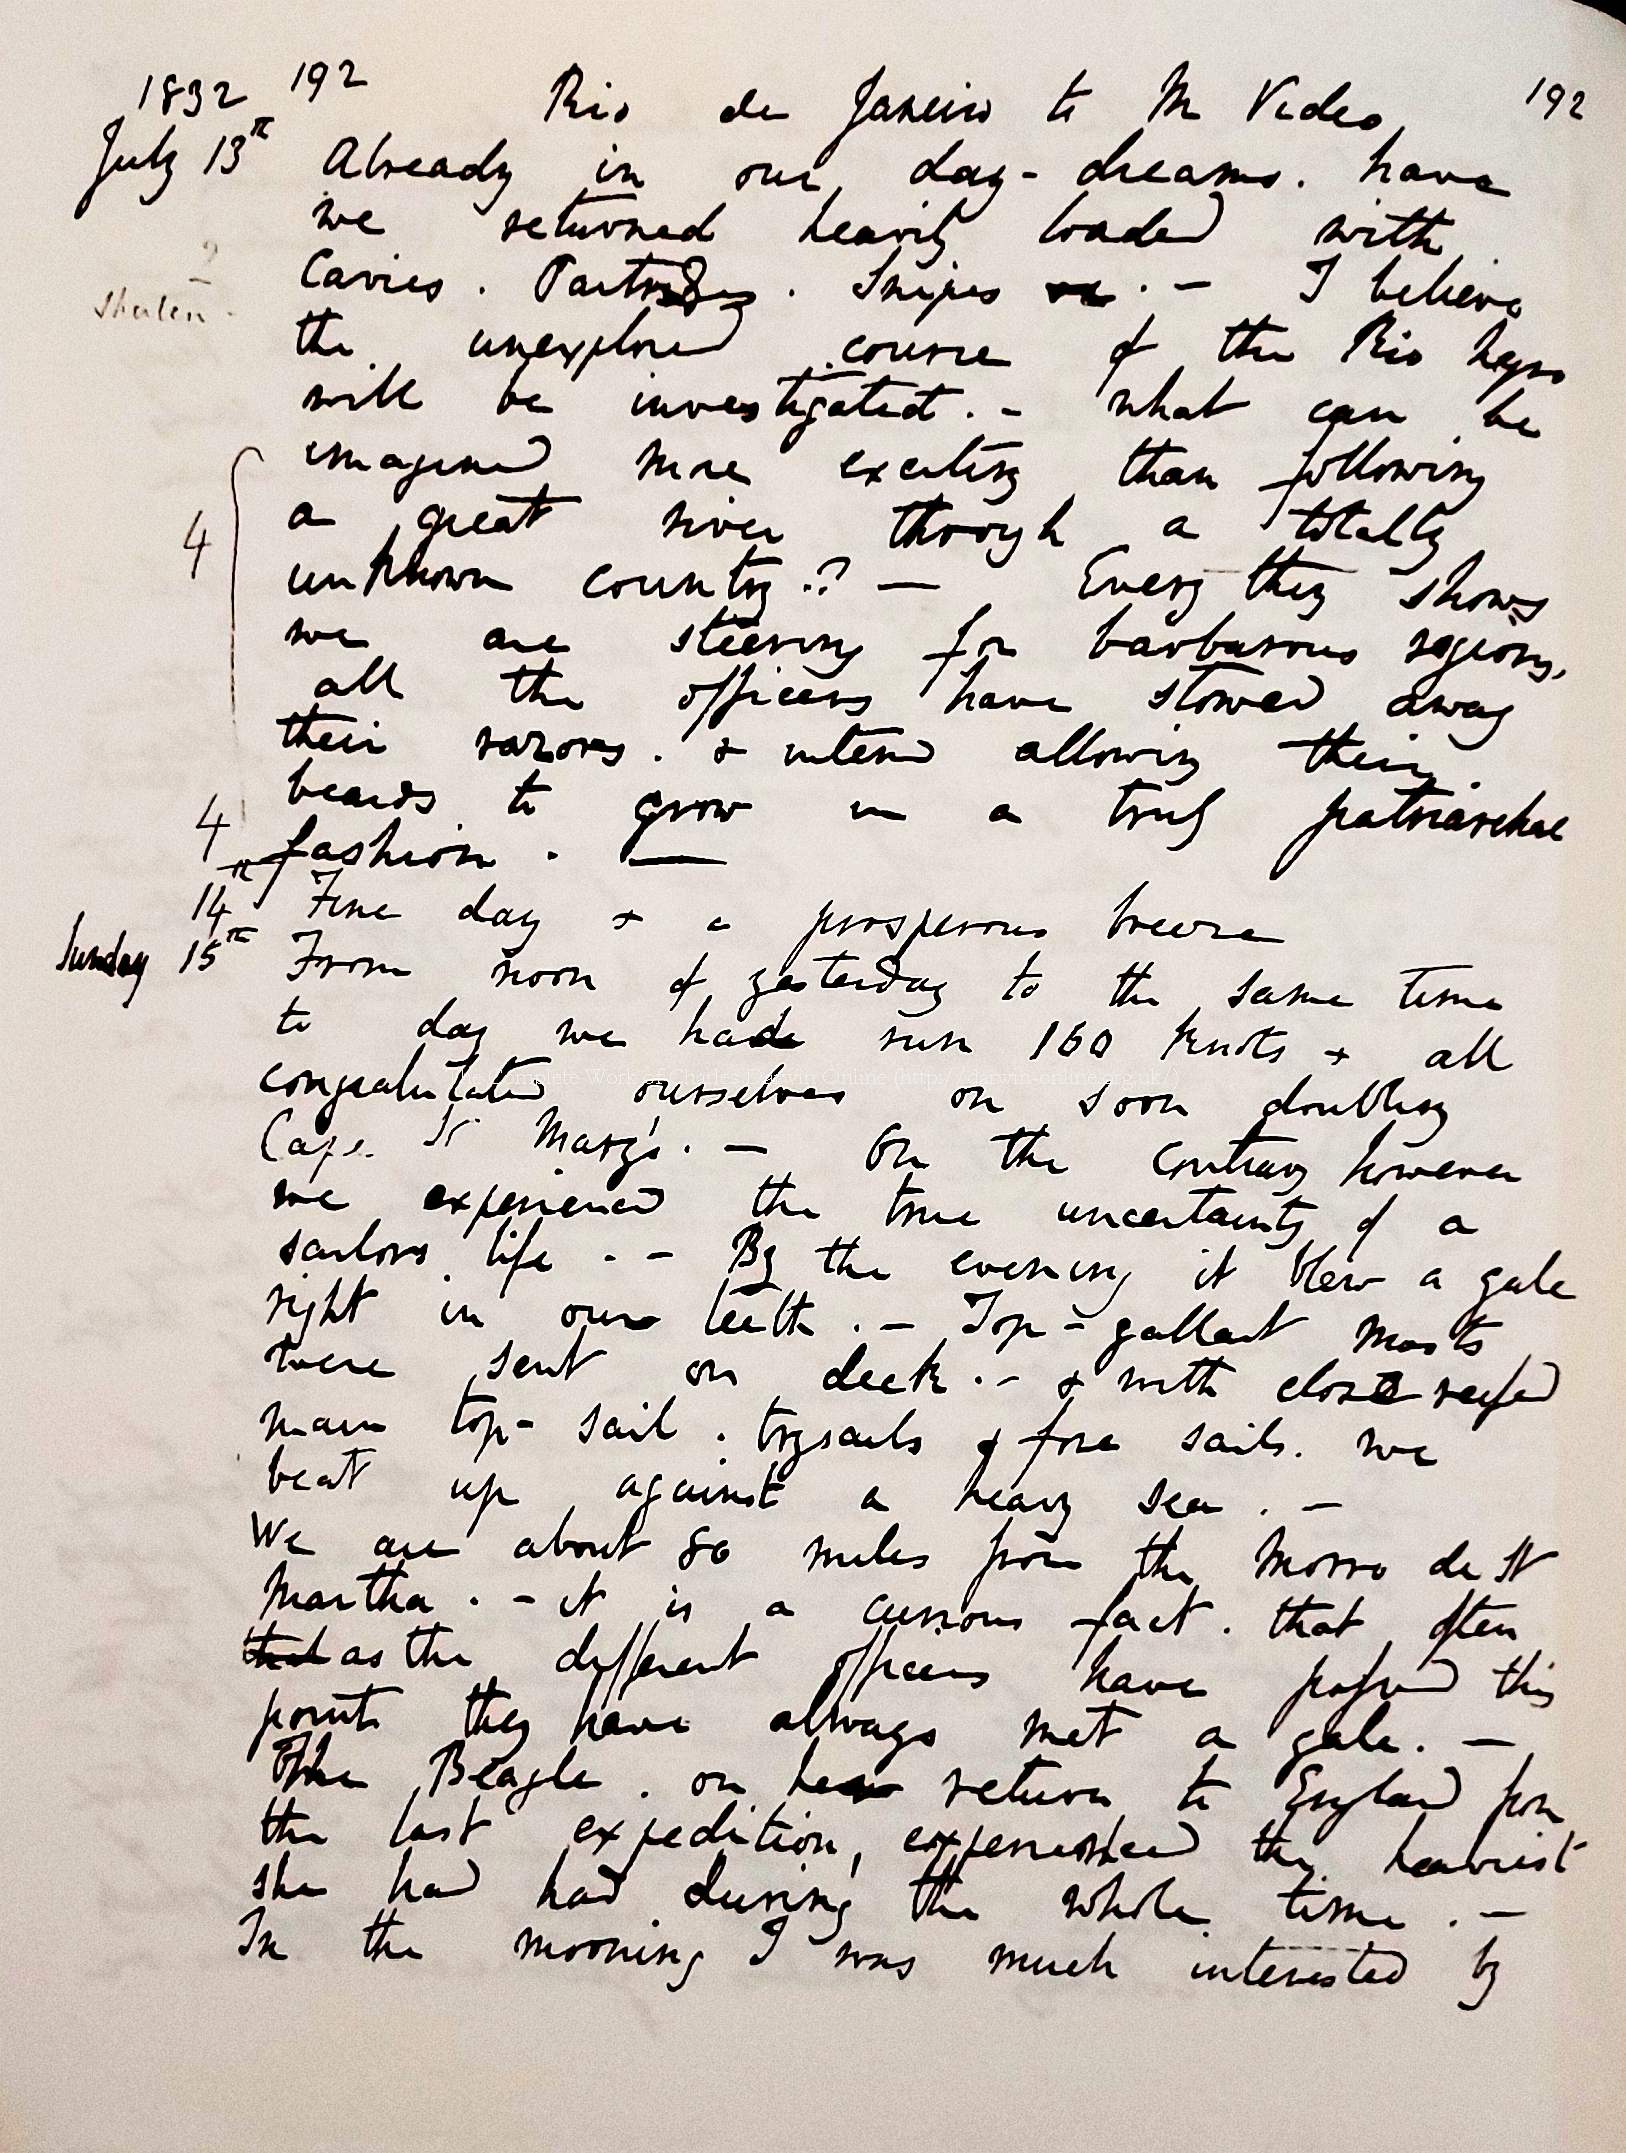 1832 192 Rio de Janeiro to M Video 192
July 13th Already in our day-dreams. have
we returned heavily loaded with
Cavies. Partridges. Snipes &c. — I believe
the unexplored course of the Rio Negro
will be investigated. — what can be
imagined more exciting than following
4 a great river through a totally
unknown country.? — Every thing shows
we are steering for barbarous regions,
all the officers have stowed away
their razors. & intend allowing their
beards to grow in a truly patriarchal
4 fashion. —
14th Fine day & a prosperous breeze
Sunday 15th From noon of yesterday to the same time
to day we had run 160 knots & all
congratulated ourselves on soon doubling
Cape St Mary's. — On the contrary however
we experienced the true uncertainty of a
sailors life. — By the evening it blew a gale
right in our teeth. — Top-gallant masts
were sent on deck. — & with close reefed
main top-sail. trysails & fore sails. we
beat up against a heavy sea. —
We are about 80 miles from the Morro de St
Martha. — it is a curious fact. that often
that as the different officers have passed this
point they have always met a gale. —
The Beagle. on her return to England from
the last expedition, experienced the heaviest
she had had during the whole time. —
In the morning I was much interested by